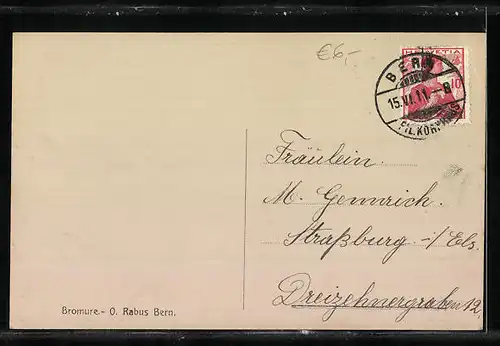 €6,-
HELVETIA
BERN
10
15.VI.11.-8
FIL.KORNHAUS
Fräulein.
M. Gemrich.
Straßburg -i/Els.
Dreizehnergraben 12.
Bromure.- O. Rabus Bern.